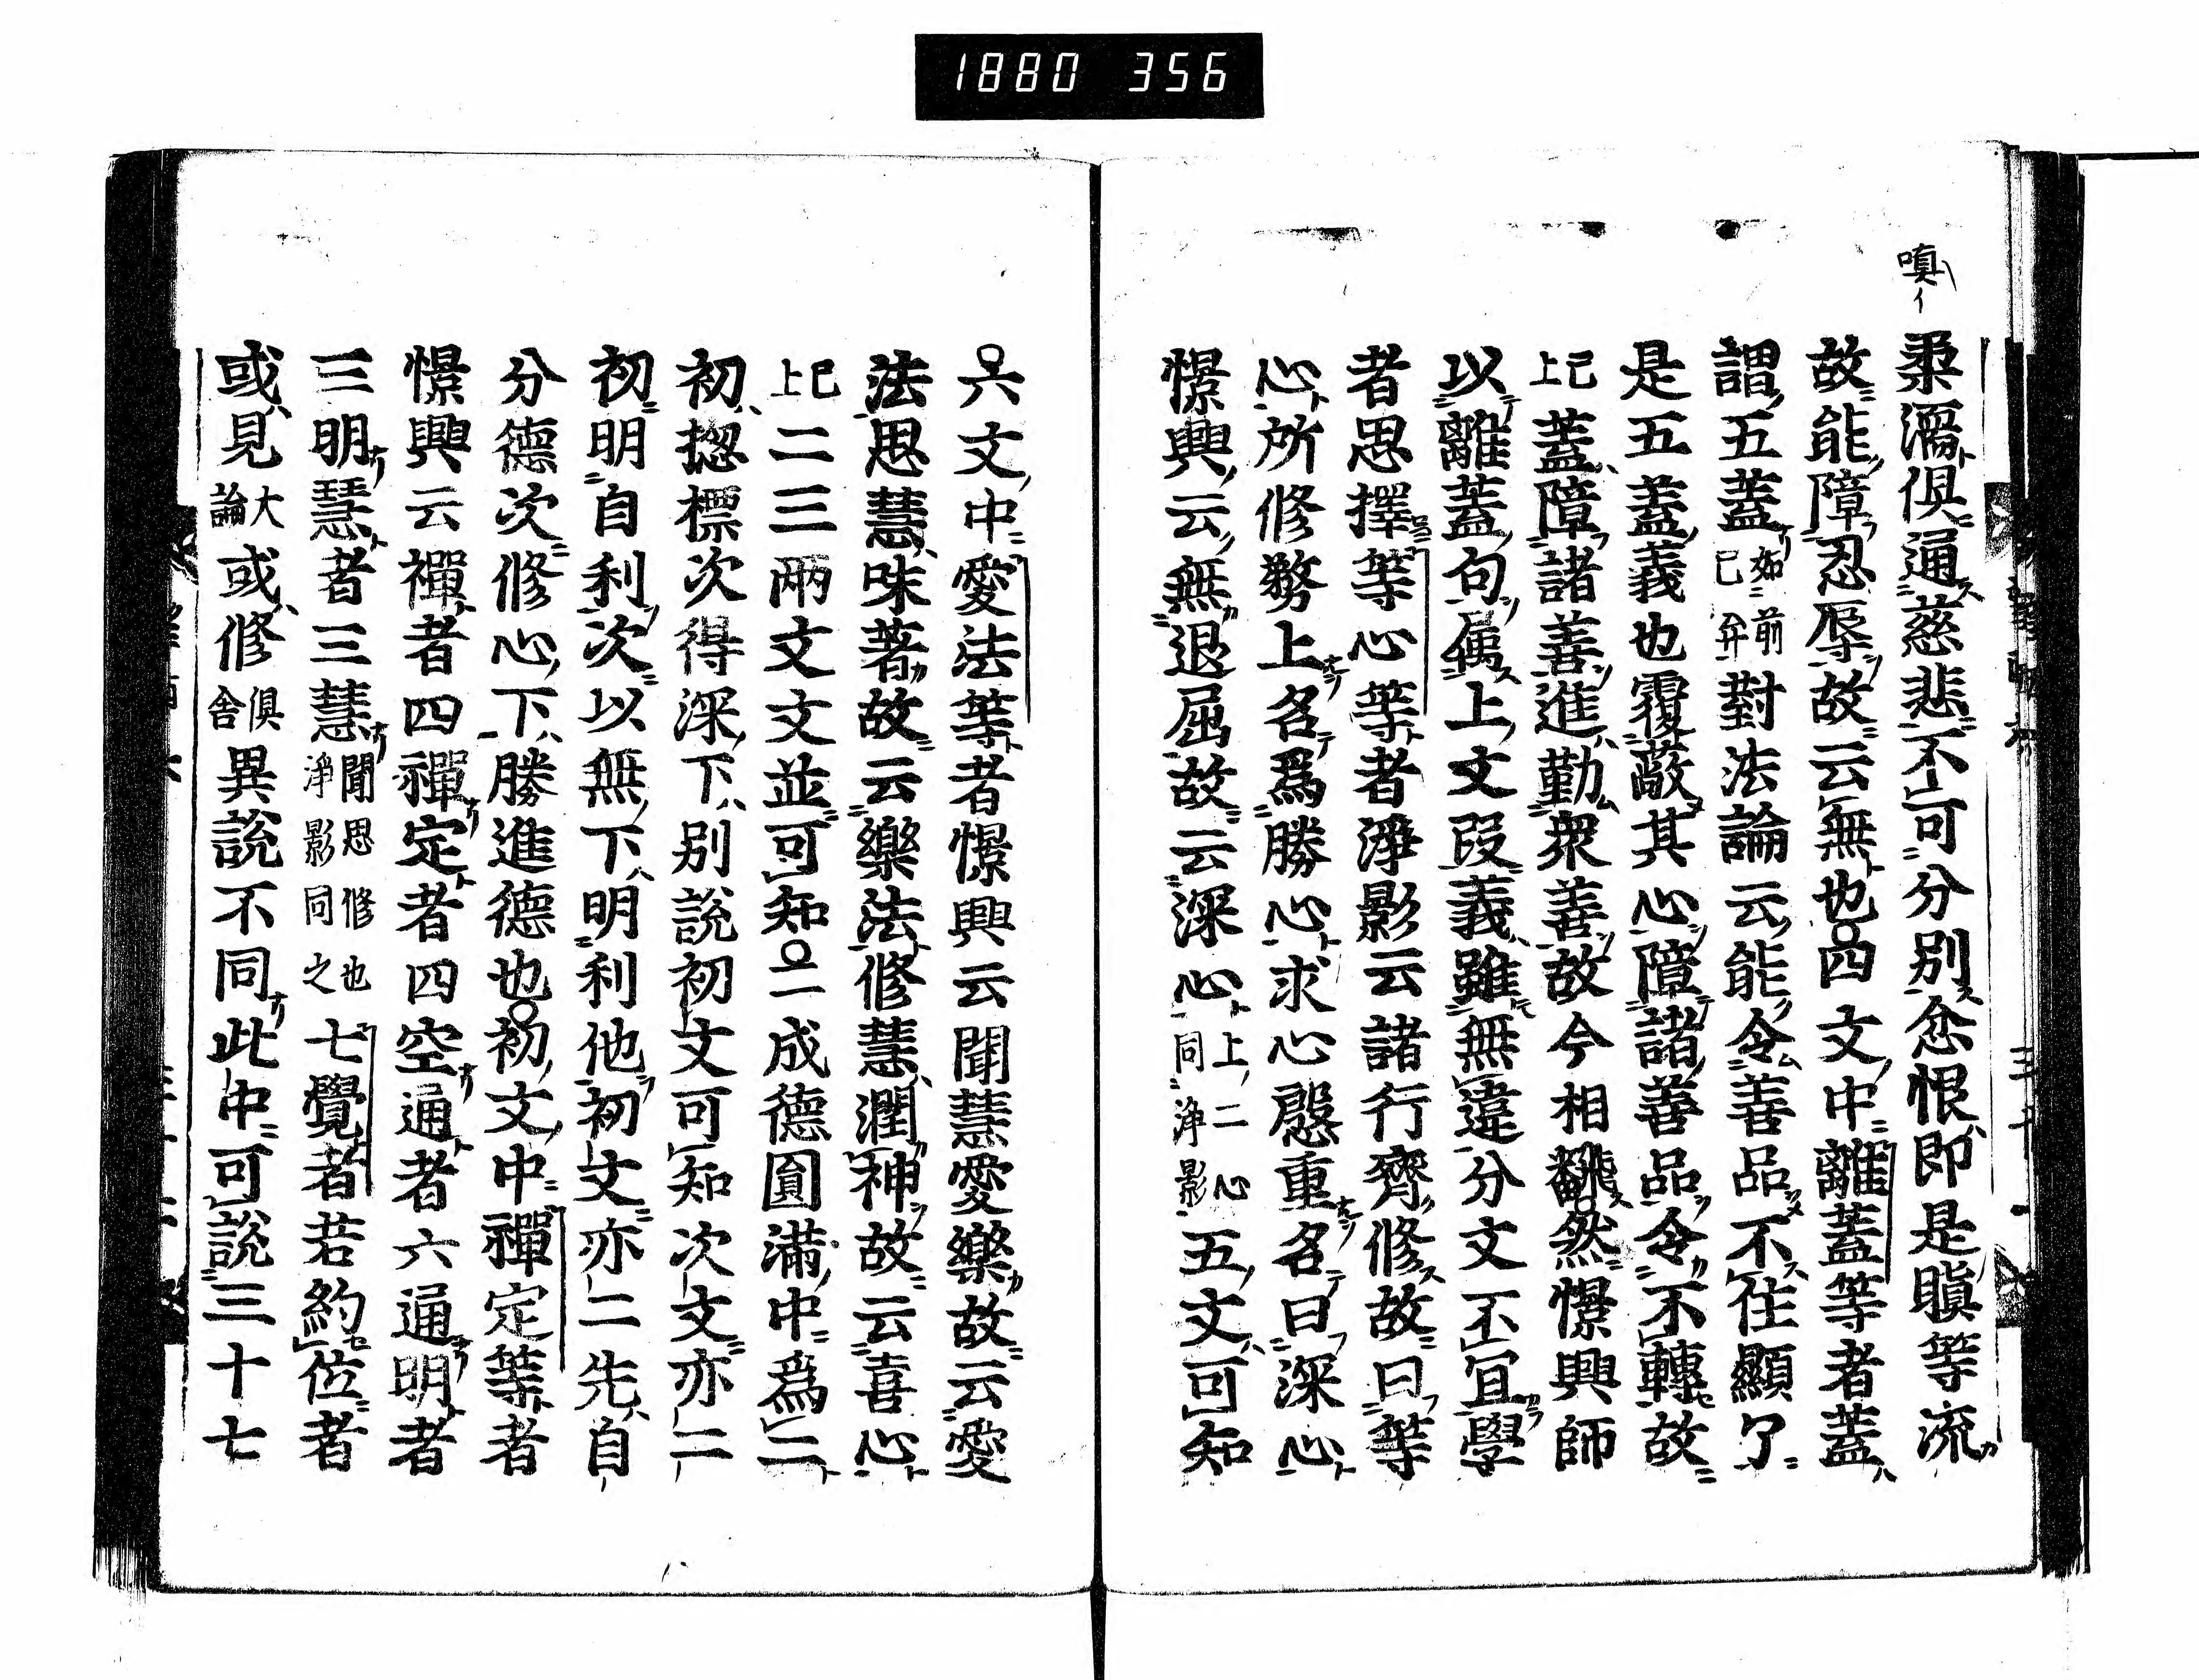 1880 356
嗔イ
柔濡俱通慈悲不可分別忿恨即是瞋等流
故能障忍辱故云無也四文中離蓋等者蓋
謂五蓋如前已弁對法論云能令善品不住顯了
是五蓋義也覆蔽其心障諸善品令不轉故
已上蓋障諸善進勤衆善故今相翻然憬興師
以離蓋句属上文段義雖無違分文不宜學
者思擇等心等者淨影云諸行齊修故曰等
心所修務上名爲勝心求心慇重名曰深心
憬興云無退屈故云深心上二心同淨影五文可知
六文中愛法等者憬興云聞慧愛樂故云愛
法思慧味著故云樂法修慧潤神故云喜心
已上二三兩文文並可知二成德圓滿中爲二
初揔標次得深下別説初文可知次文亦二
初明自利次以無下明利他初文亦二先自
分德次修心下勝進德也初文中禪定等者
憬興云禪者四禪定者四空通者六通明者
三明慧者三慧聞思修也淨影同之七覺者若約位者
或見大論或修俱舍異説不同此中可説三十七